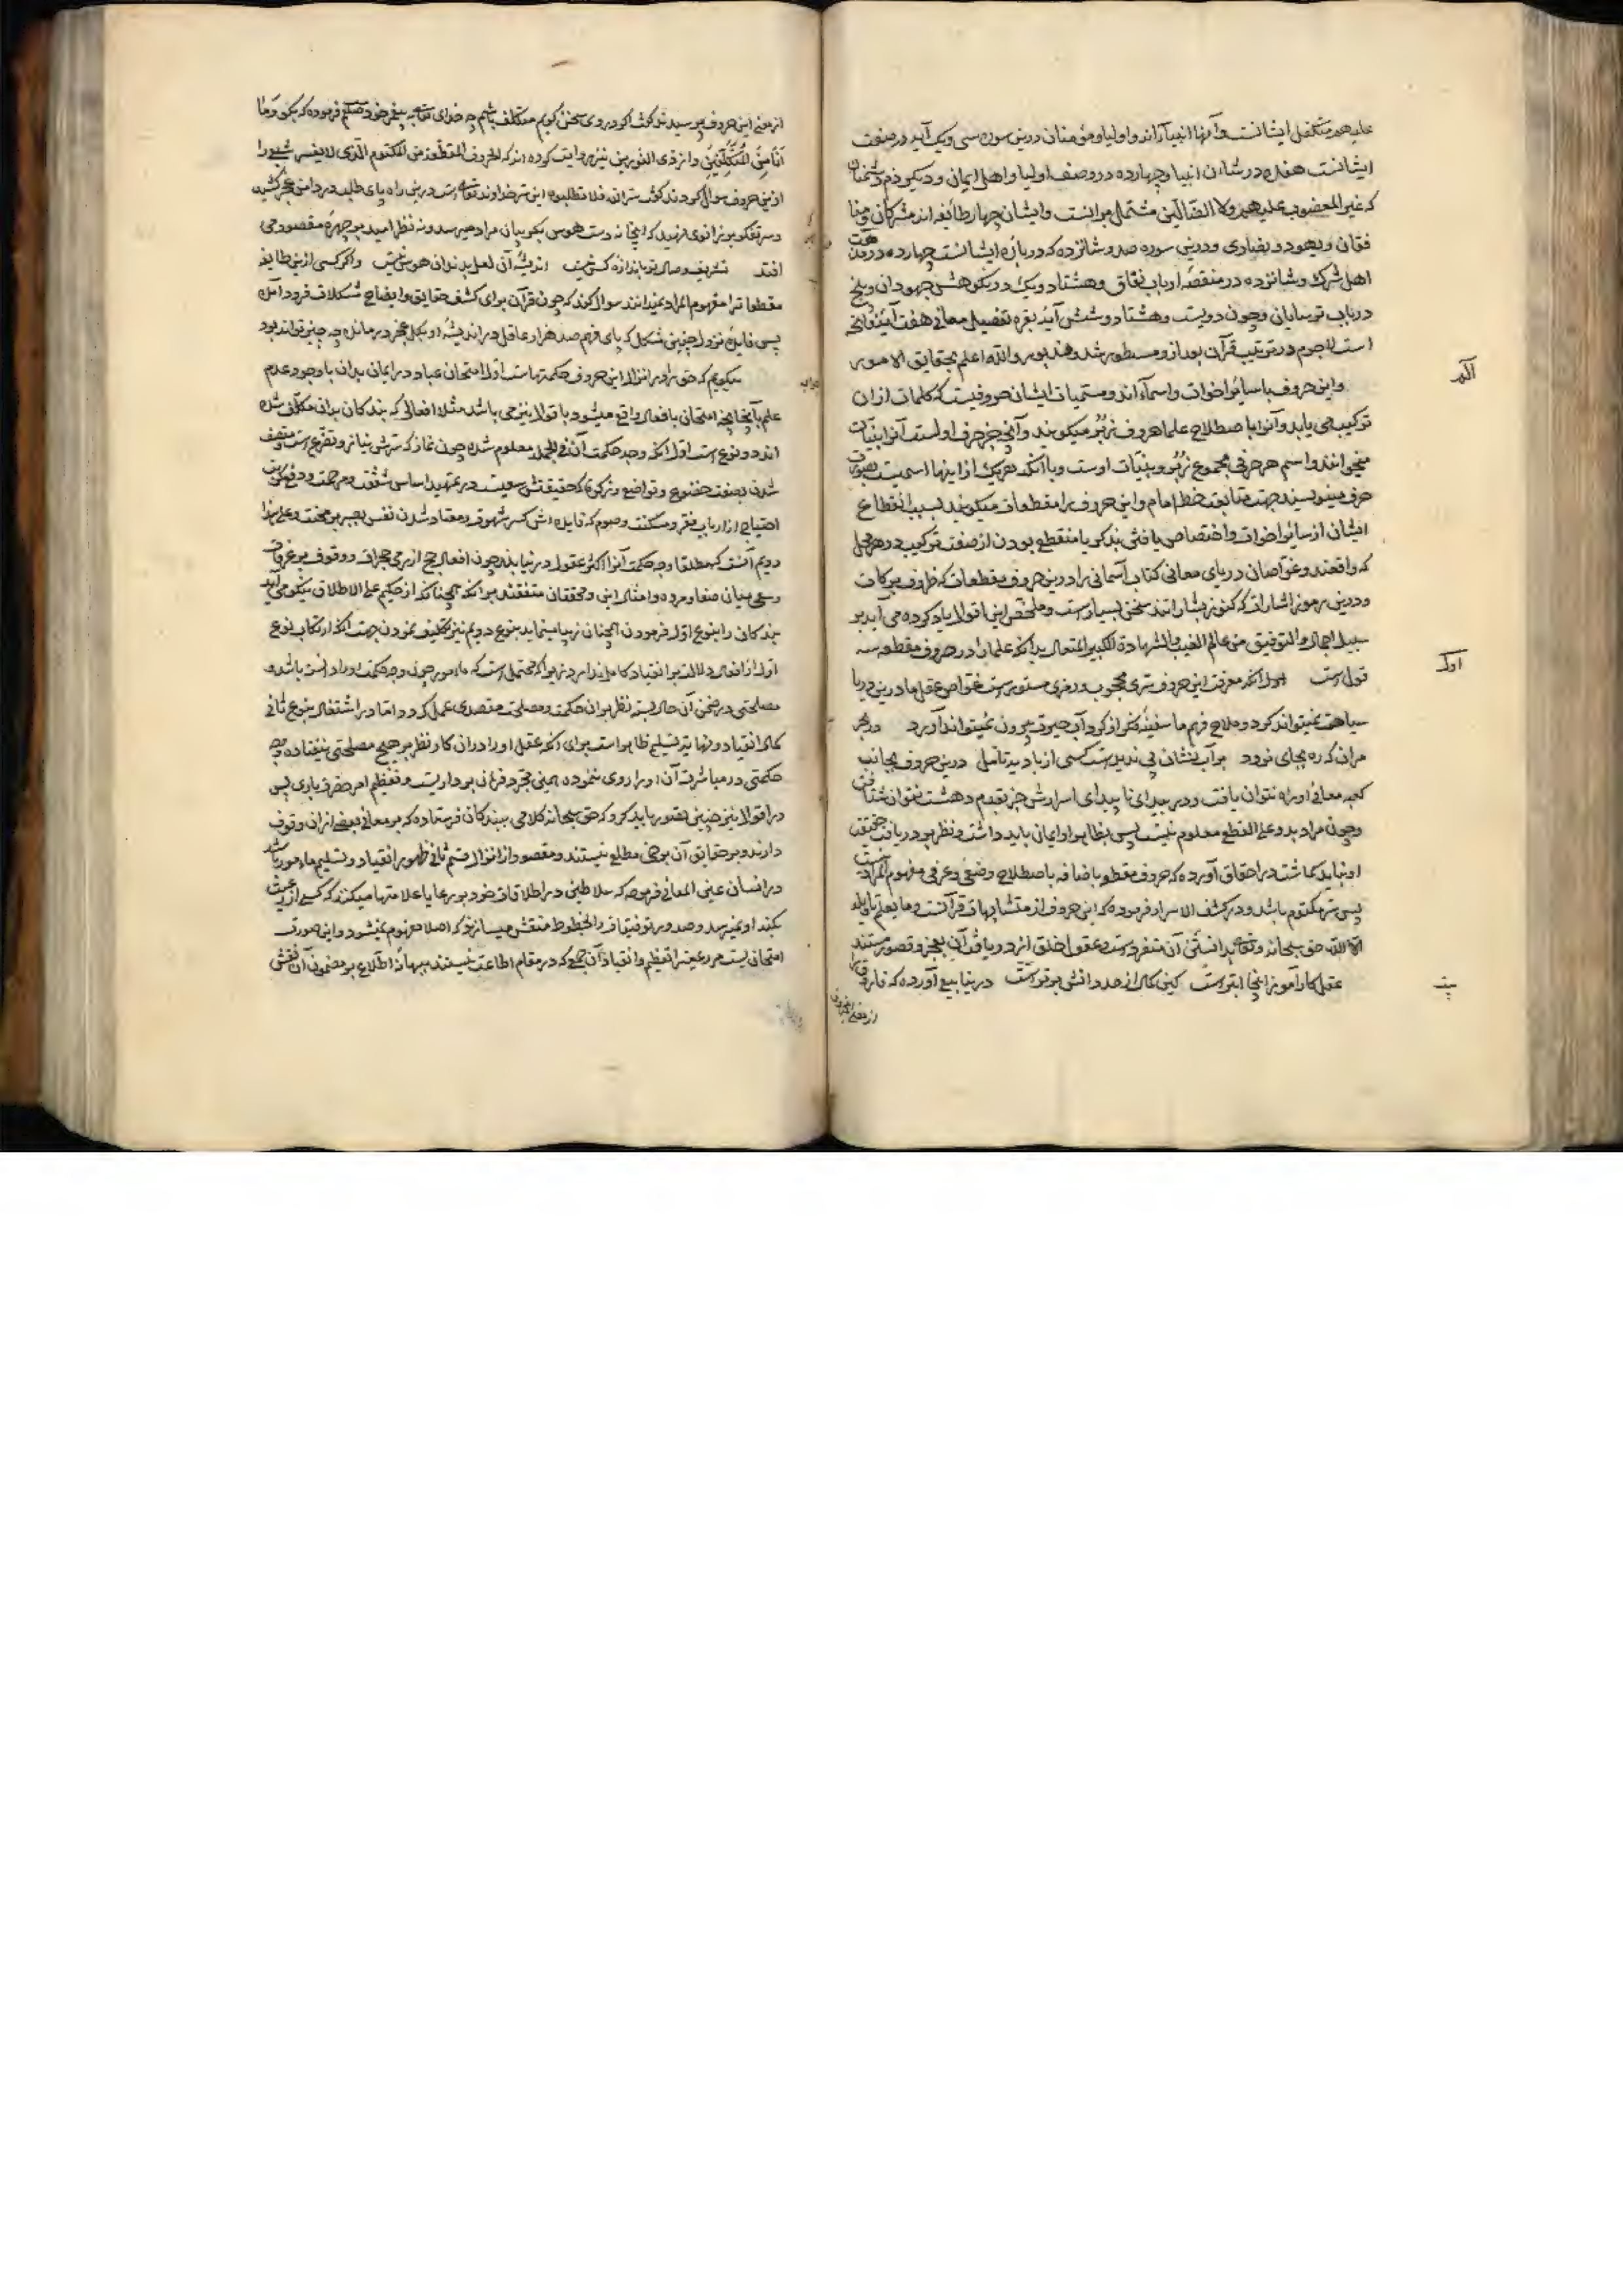 علیهم متکفل ایشانست و آنها انبیا اند و اولیا و مؤمنان درین سوره سی و یک آیه در صفت
ایشانست هفده در شان انبیا و چهارده در وصف اولیا و اهل ایمان و دیگر ذم دشمنان
که غیر المغضوب علیهم ولا الضالین مشتمل برانست و ایشان چهار طائفه اند مشرکان و منا
فقان و یهود و نصاری و درین سوره صد و شانزده که درباره ایشانست چهارده در مذمت
اهل شرک و شانزده در منقصه ارباب نفاق و هشتاد و یک در نکوهش جهودان و پنج
در باب ترسایان و چون دویست و هشتاد و شش آیه بقره تفصیل معانی هفت آیه فاتحه
است لاجرم در ترتیب قرآن بعد از و مسطور شد والله اعلم بحقایق الامور
الم
و این حروف با سایر اخوات و اسماء اند و مسمیات ایشان حروفیست که کلمات ازان
ترکیب می یابد و آنرا باصطلاح علما حروف زبر میگویند و آنچه جز حرف اولست آنرا بینات
میخوانند و اسم هر حرفی مجموع زبر و بینات اوست و با آنکه هر یک ازاینها اسمیست بصورت
حرف مینویسند جهت متابعت خط امام و این حروف را مقطعات میگویند بسبب انقطاع
ایشان از سایر اخوات و اختصاص یافتن بذکر یا منقطع بودن از صفت ترکیب در هر محل
که واقعند و غواصان دریای معانی کتاب آسمانی را درین حروف مقطعات که ظروف برکات
و درین رموز اشارات که کنوز بشاراتند سخن بسیارست و ملخص این اقوال یاد کرده می آید بر
سبیل اجمال والتوفیق من عالم الغیب والشهادة الکبیر المتعال بدانکه علما را در حروف مقطعه سه
اول
قول است اول آنکه معرفت این حروف سری محجوب و رمزی مستورست غواص عقل ما درین دریا
سباحت نمیتواند کرد و ملاح فهم ما سفینه فکر از گرداب حیرت بیرون نمیتواند آورد در بحر
مران که ره بجای نبرد بر آب نشان پی ندیدست کسی از بادیه تأمل درین حروف بجانب
کعبه معانی او راه نتوان یافت و در بیدای ناپیدای اسرارش جز بقدم دهشت نتوان شتافت
و چون مراد بدو علی القطع معلوم نیست پس بظاهر او ایمان باید داشت و نظر بر دریافت حقیقت
او نباید گماشت در احقاق آورده که حروف مقطعه باضافه باصطلاح وضعی و عرفی مفهوم المراد نیست
پس سر مکتوم باشد و در کشف الاسرار فرموده که این حروف از متشابهات قرآنست وما یعلم تأویله
الا الله حق سبحانه وتعالی بدانستن آن متفردست و عقول خلق از دریافت آن بعجز و قصور معترفند
بیت
عقل کارآموز اینجا ابترست کین کمال از حد دانش برترست در ینابیع آورده که فاروق را
از معنی این حروف
از معنی این حروف پرسیدند گفت اگر در وی سخن گویم متکلف باشم چه خدای تعالی به پیغمبر خود صلعم فرموده که بگو وما
انا من المتکلفین و از ذی النورین نیز روایت کرده اند که الحروف المقطعة من المکتوم الذی لا یفسر
ازین حروف سوال کردند گفت سر الله فلا تطلبوه این سر خداوند تعالی است درین راه پای طلب در دامن عجز کشید
و سر تفکر بر زانوی نهید که اینجا نه دست هوس بگریبان مراد میرسد و نه نظر امید بر چهره مقصود می
افتد تشریف وصال تو باندازه کس نیست اندیشه آن لعل بدندان هوس نیست و اگر کسی ازین طایفه
مقطعات را مفهوم المراد نمیدانند سوال کند که چون قرآن برای کشف حقایق و ایضاح مشکلات فرود آمده
پس فایده نزول چنین مشکل که پای فهم صد هزار عاقل در اندیشه او بگل عجز درمانده چه چیز تواند بود
جواب
میگویم که حق را در انزال این حروف حکمتهاست اولا امتحان عباد در ایمان بدان با وجود عدم
علم بآن چنانچه امتحان بافعال واقع میشود باقوال نیز می باشد مثلا افعالی که بندگان بدان مکلف شده
اند دو نوع است اول آنکه وجه حکمت آن فی الجمله معلوم شده چون نماز که سرش نیاز و تضرع است و متصف
شدن بصفت خشوع و تواضع و زکوة که حقیقتش سعیست در تمهید اساس شفقت و مرحمت و دفع کردن
احتیاج از ارباب فقر و مسکنت و صوم که فایده اش کسر شهوتست و معتاد شدن نفس بصبر بر محنت وعلی هذا
دویم آنست که مطلقا وجه حکمت آنرا اکثر عقول درنیابند چون افعال حج از رمی جمرات و وقوف بر عرفات
و سعی میان صفا و مروه و امثال این و محققان متفقند برانکه آنچنانکه از حکیم علی الاطلاق نیکو می آید
بندگان را بنوع اول فرمودن آنچنان زیبا مینماید بنوع دویم نیز تکلیف نمودن جهت آنکه ارتکاب نوع
اول از افعال دلالت بر انقیاد کامل ندارد زیرا که محتمل است که مامور چون وجه حکمت او را دانسته باشد و
مصلحتی در ضمن آن حال بسته نظر بران حکمت و مصلحت متصدی عمل گردد اما در اشتغال بنوع ثانی
کمال انقیاد و نهایت تسلیم ظاهر است برای آنکه عقل او را دران کار نظر بر هیچ مصلحتی نیفتاده و وجه
حکمتی در مباشرت آن او را روی ننموده همین مجرد فرمان برداریست و تعظیم امر حضرت باری پس
در اقوال نیز چنین تصور باید کرد که حق سبحانه کلامی ببندگان فرستاده که بر معانی بعضی ازان وقوف
دارند و بر حقایق آن برخی مطلع نیستند و مقصود از انزال قسم ثانی ظهور انقیاد و تسلیم مامور باشد
در انسان عین المعانی فرموده که سلاطین در اطلاقات خود بر رعایا علامتها میکنند که کسی از رعیت
بکنه او نمیرسد و صدور توقیعات را بخطوط منقش میسازند که اصلا مفهوم نمیشود و این صورت
امتحانیست مر رعیت را تعظیم و انقیاد آن جمعی که در مقام اطاعت نیستند ببهانه اطلاع بر مضمون آن نقش